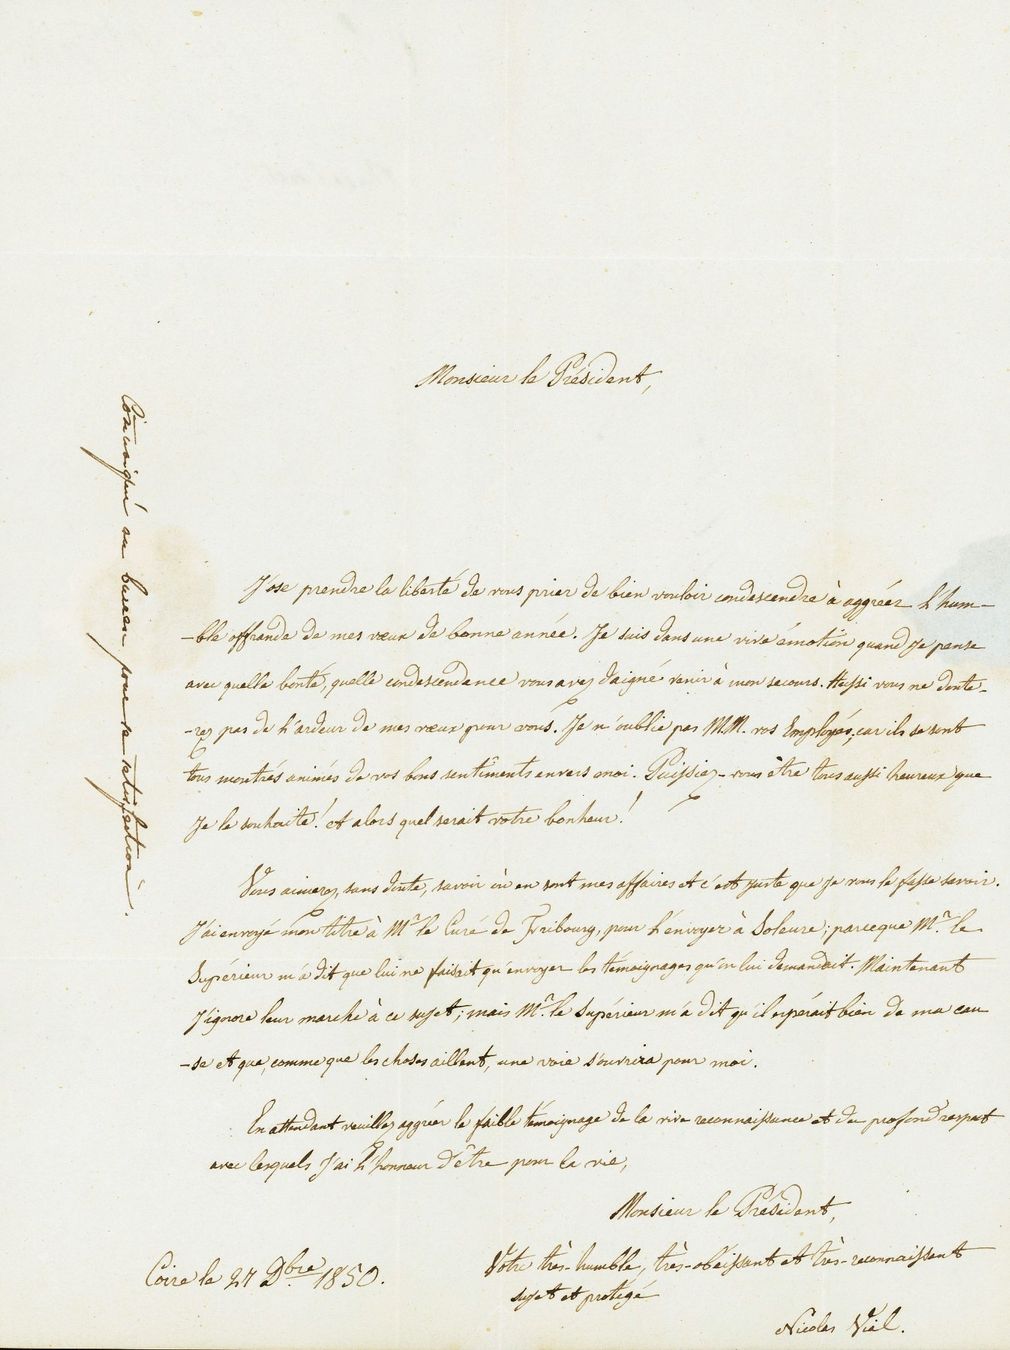 Monsieur le Président,
J'ose prendre la liberté de vous prier de bien vouloir condescendre à aggréer l'hum-
-ble offrande de mes vœux de bonne année. Je suis dans une vive émotion quand je pense
avec quelle bonté, quelle condescendance vous avez daigné venir à mon secours. Aussi vous ne doute-
-rez pas de l'ardeur de mes vœux pour vous. Je n'oublie pas MM. vos Employés, car ils se sont
tous montrés animés de vos bons sentiments envers moi. Puissiez-vous être tous aussi heureux que
je le souhaite! et alors quel serait votre bonheur!
Vous aimerez, sans doute, savoir où en sont mes affaires et c'est juste que je vous le fasse savoir.
J'ai envoyé mon titre à Mr. le Curé de Fribourg, pour l'envoyer à Soleure; parceque Mr. le
Supérieur m'a dit que lui ne faisait qu'envoyer les témoignages qu'on lui demandait. Maintenant
j'ignore leur marche à ce sujet; mais Mr. le Supérieur m'a dit qu'il espérait bien de ma cau-
-se et que, comme que les choses aillent, une voie s'ouvrira pour moi.
En attendant veuillez aggréer le faible témoignage de la vive reconnaissance et du profond respect
avec lesquels j'ai l'honneur d'être pour la vie,
Monsieur le Président,
Votre très-humble, très-obéissant et très-reconnaissant
sujet et protégé
Nicolas Vial.
Coire le 27 Dbre 1850.
au bureau pour sa satisfaction.